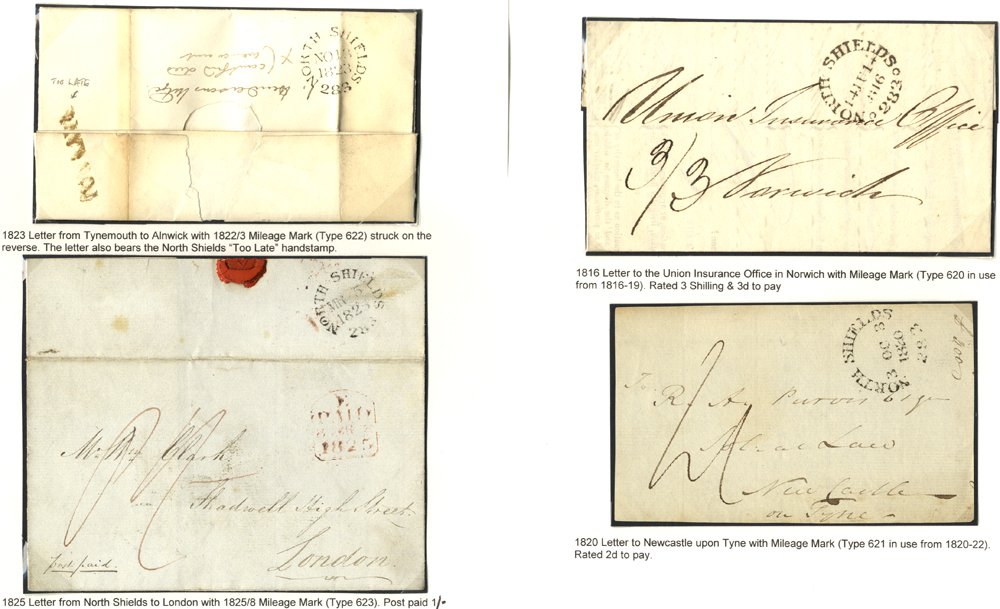 TOO LATE
NORTH SHIELDS
1823
283
1823 Letter from Tynemouth to Alnwick with 1822/3 Mileage Mark (Type 622) struck on the
reverse. The letter also bears the North Shields “Too Late” handstamp.
NORTH SHIELDS
1825
283
PAID
1825
Clark
Shadwell High Street
London
post paid
1825 Letter from North Shields to London with 1825/8 Mileage Mark (Type 623). Post paid 1/-
NORTH SHIELDS
283
Union Insurance Office
3/3 Norwich
1816 Letter to the Union Insurance Office in Norwich with Mileage Mark (Type 620 in use
from 1816-19). Rated 3 Shilling & 3d to pay
NORTH SHIELDS
OC 3
1820
283
To
Purvis Esqr
at Law
New Castle
on Tyne
1820 Letter to Newcastle upon Tyne with Mileage Mark (Type 621 in use from 1820-22).
Rated 2d to pay.